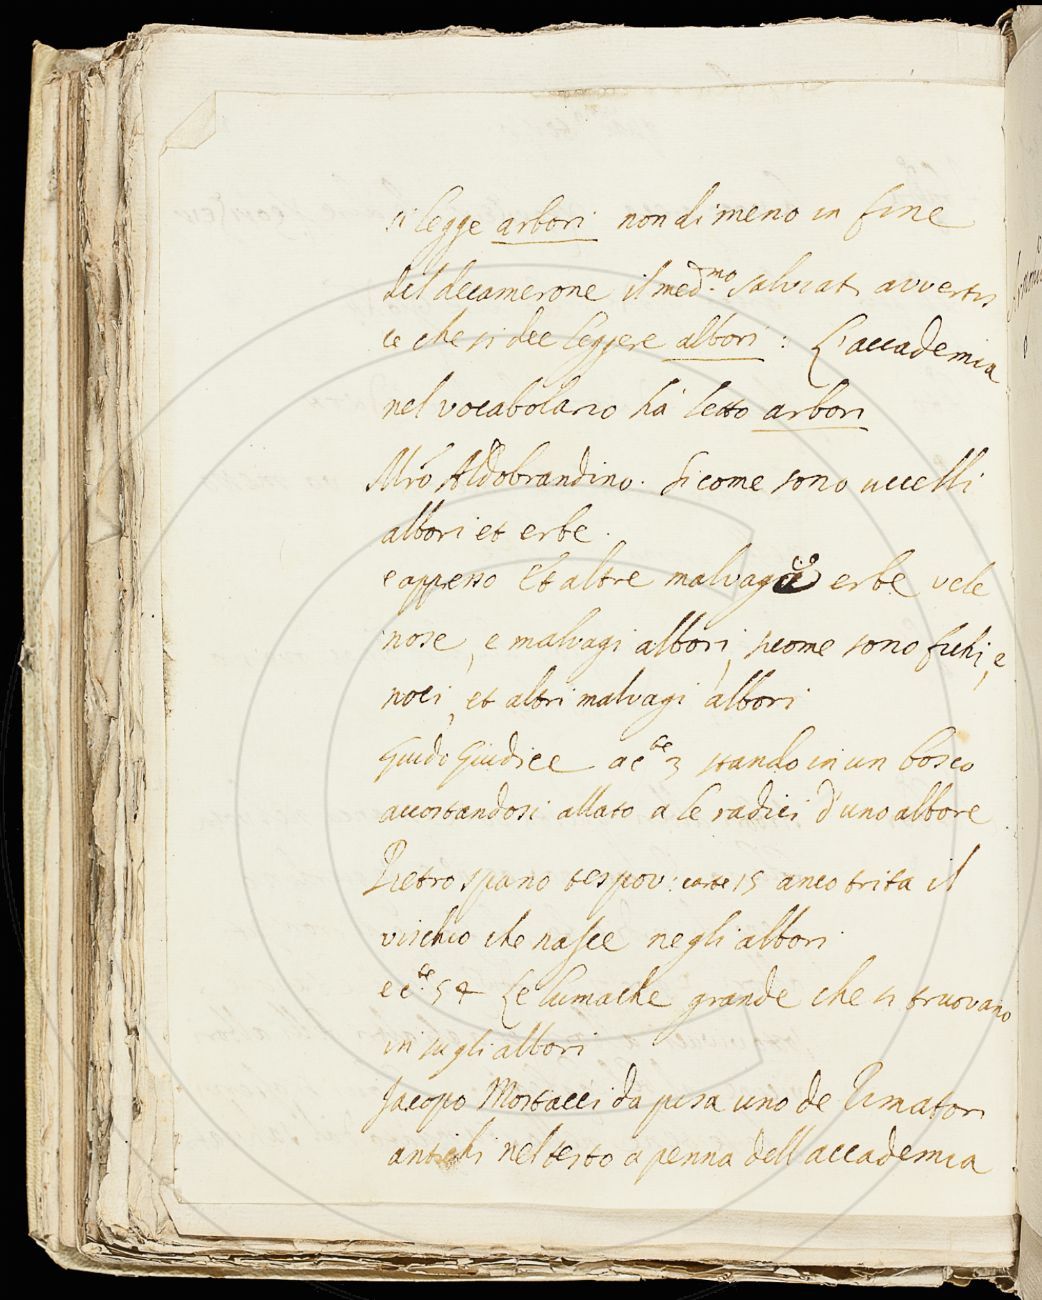 si legge arbori nondimeno in fine
del decamerone il med.mo salviati avvertis
ce che si dee leggere albori : L'accademia
nel vocabolario ha letto arbori
Mro Aldobrandino. Sicome sono uccelli
albori et erbe.
e appresso Et altre malvagie erbe vele
nose, e malvagi albori, sicome sono fichi, e
noci, et altri malvagi albori
Guido Giudice a c.te 3 stando in un bosco
accostandosi allato a le radici d'uno albore
Pietro spano tes pov: carte 15 anco trita il
vischio che nasce negli albori
e c.te 54 Le lumache grande che si truovano
in su gli albori
Jacopo Mostacci da pisa uno de Rimatori
antichi nel testo a penna dell accademia